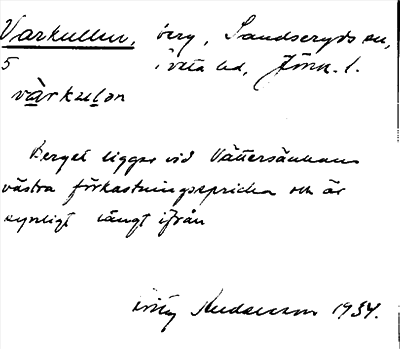 Varkullen, berg, Sandseryds sn,
5 Tveta hd, Jönk. l.
vàrkulon
Berget ligger vid Vättersänkans
västra förkastningsspricka och är
synligt långt ifrån
Andersson 1934.